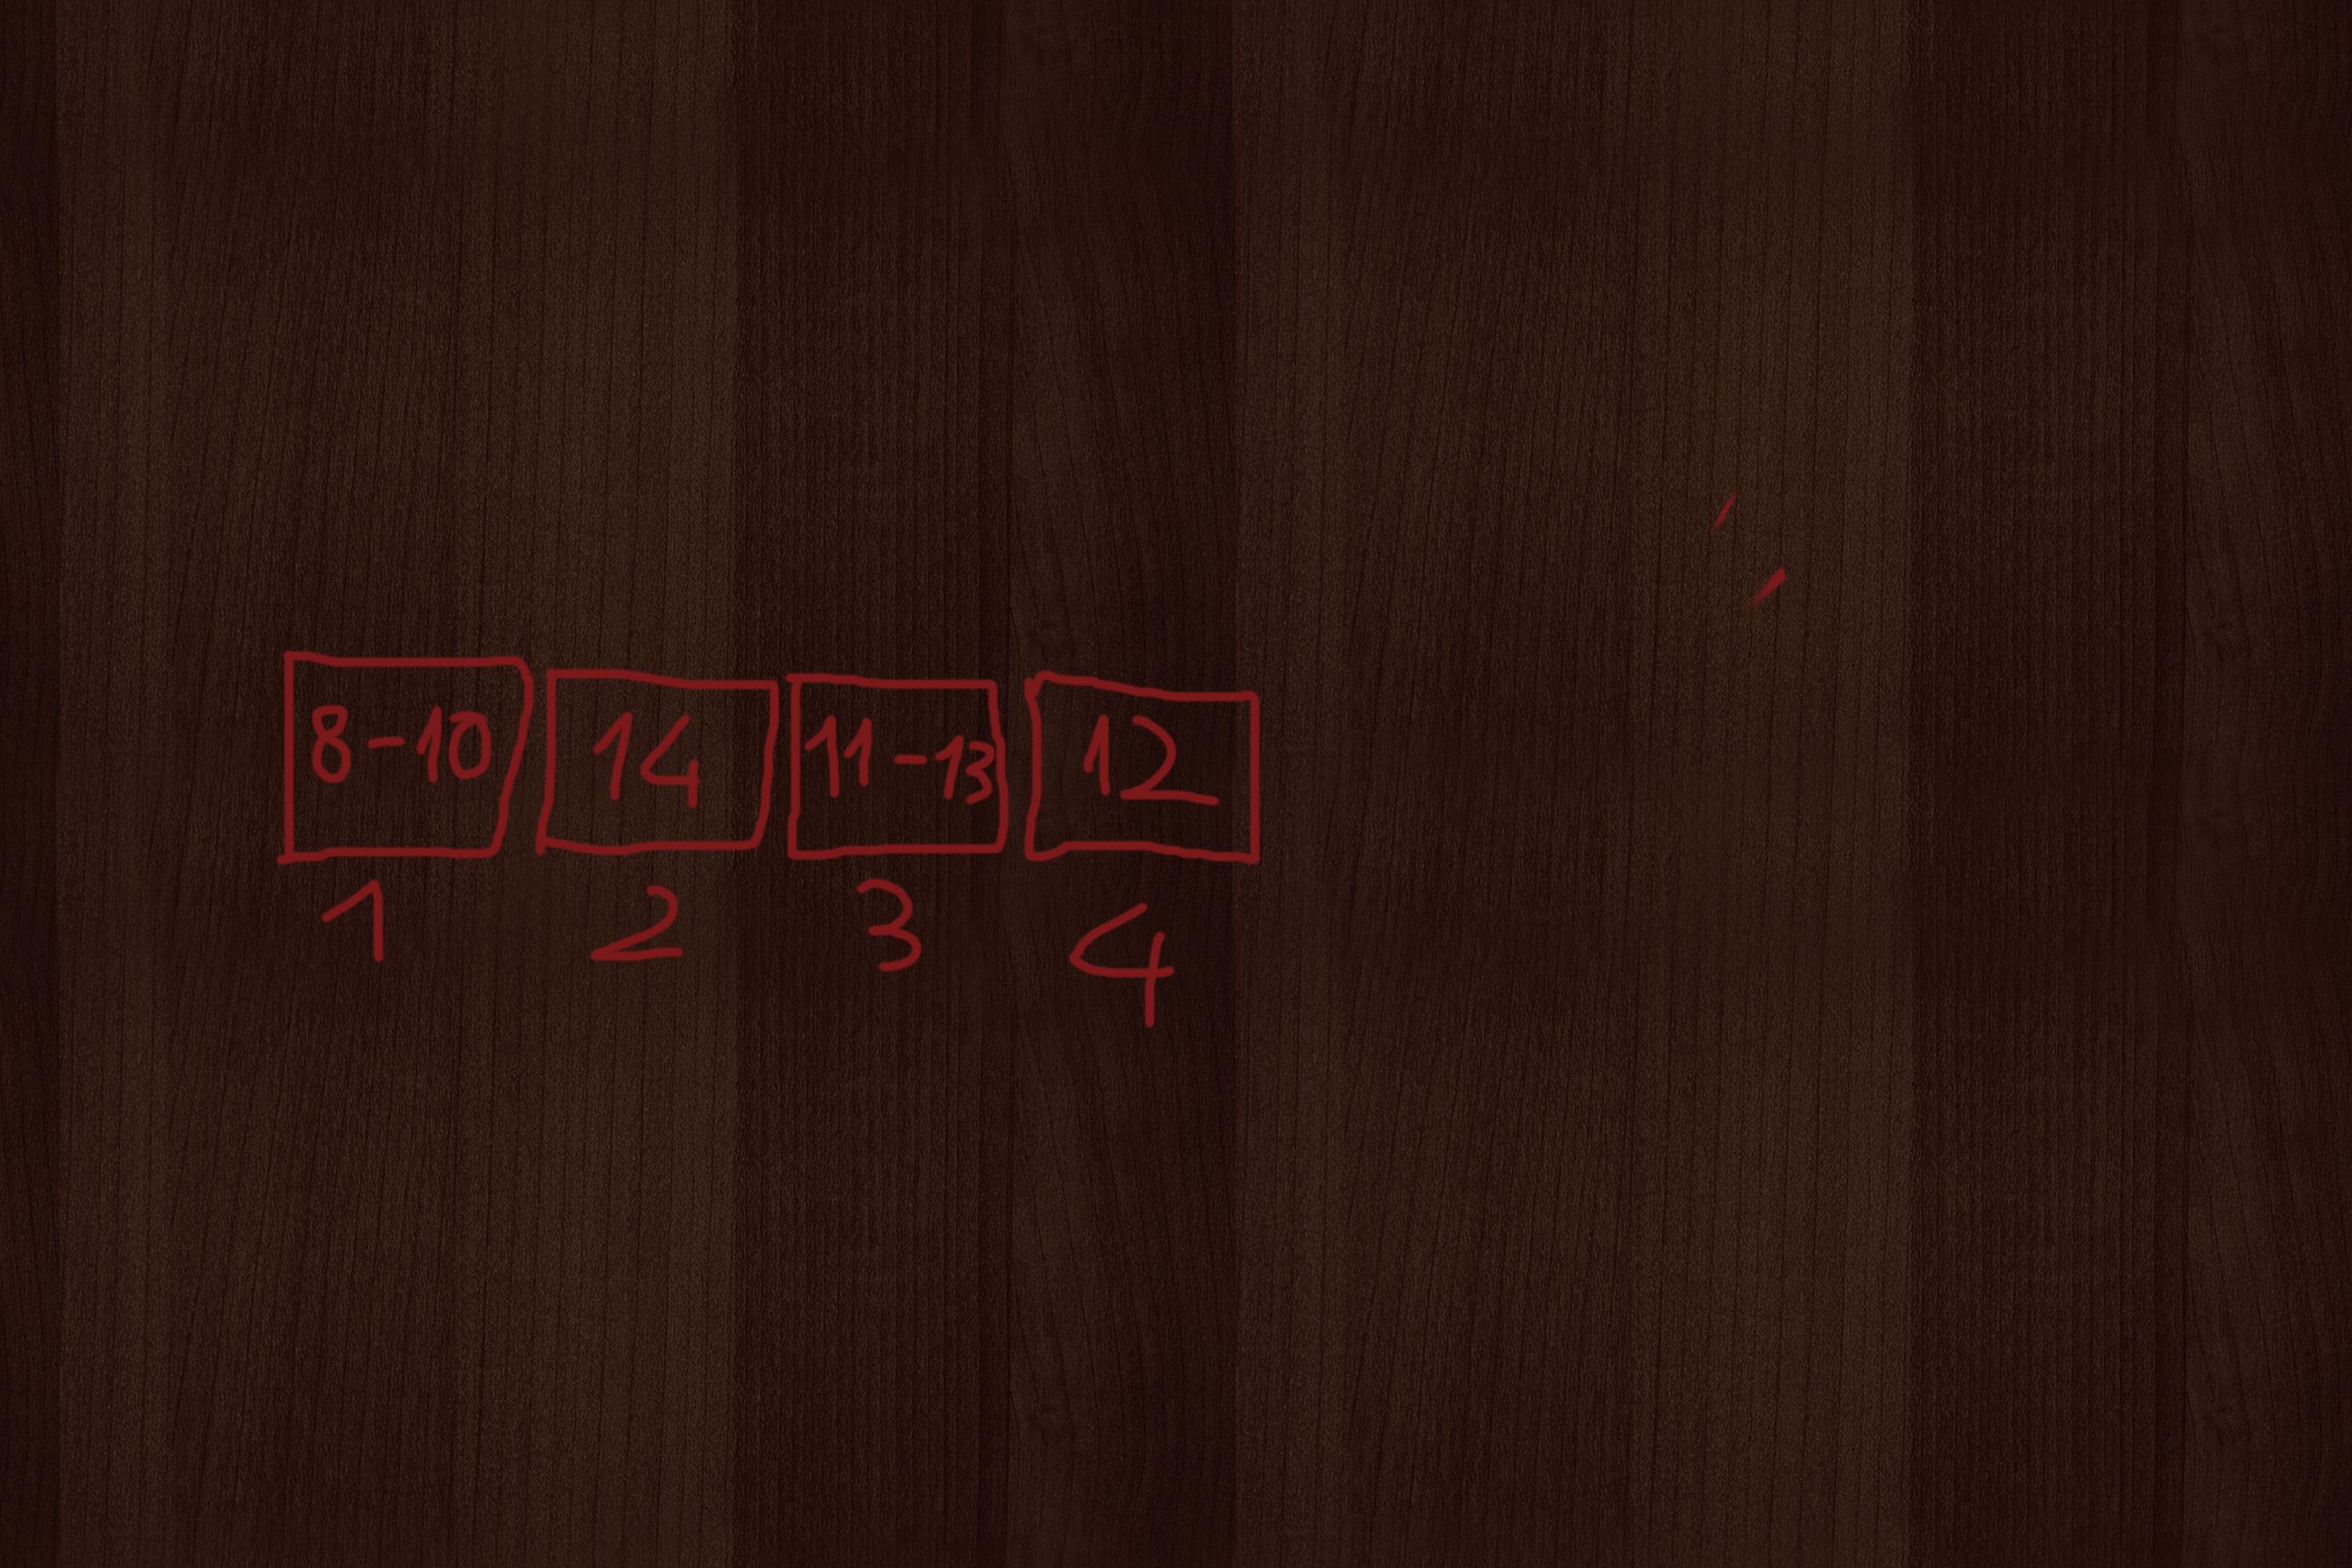 8-10 14 11-13 12
1 2 3 4